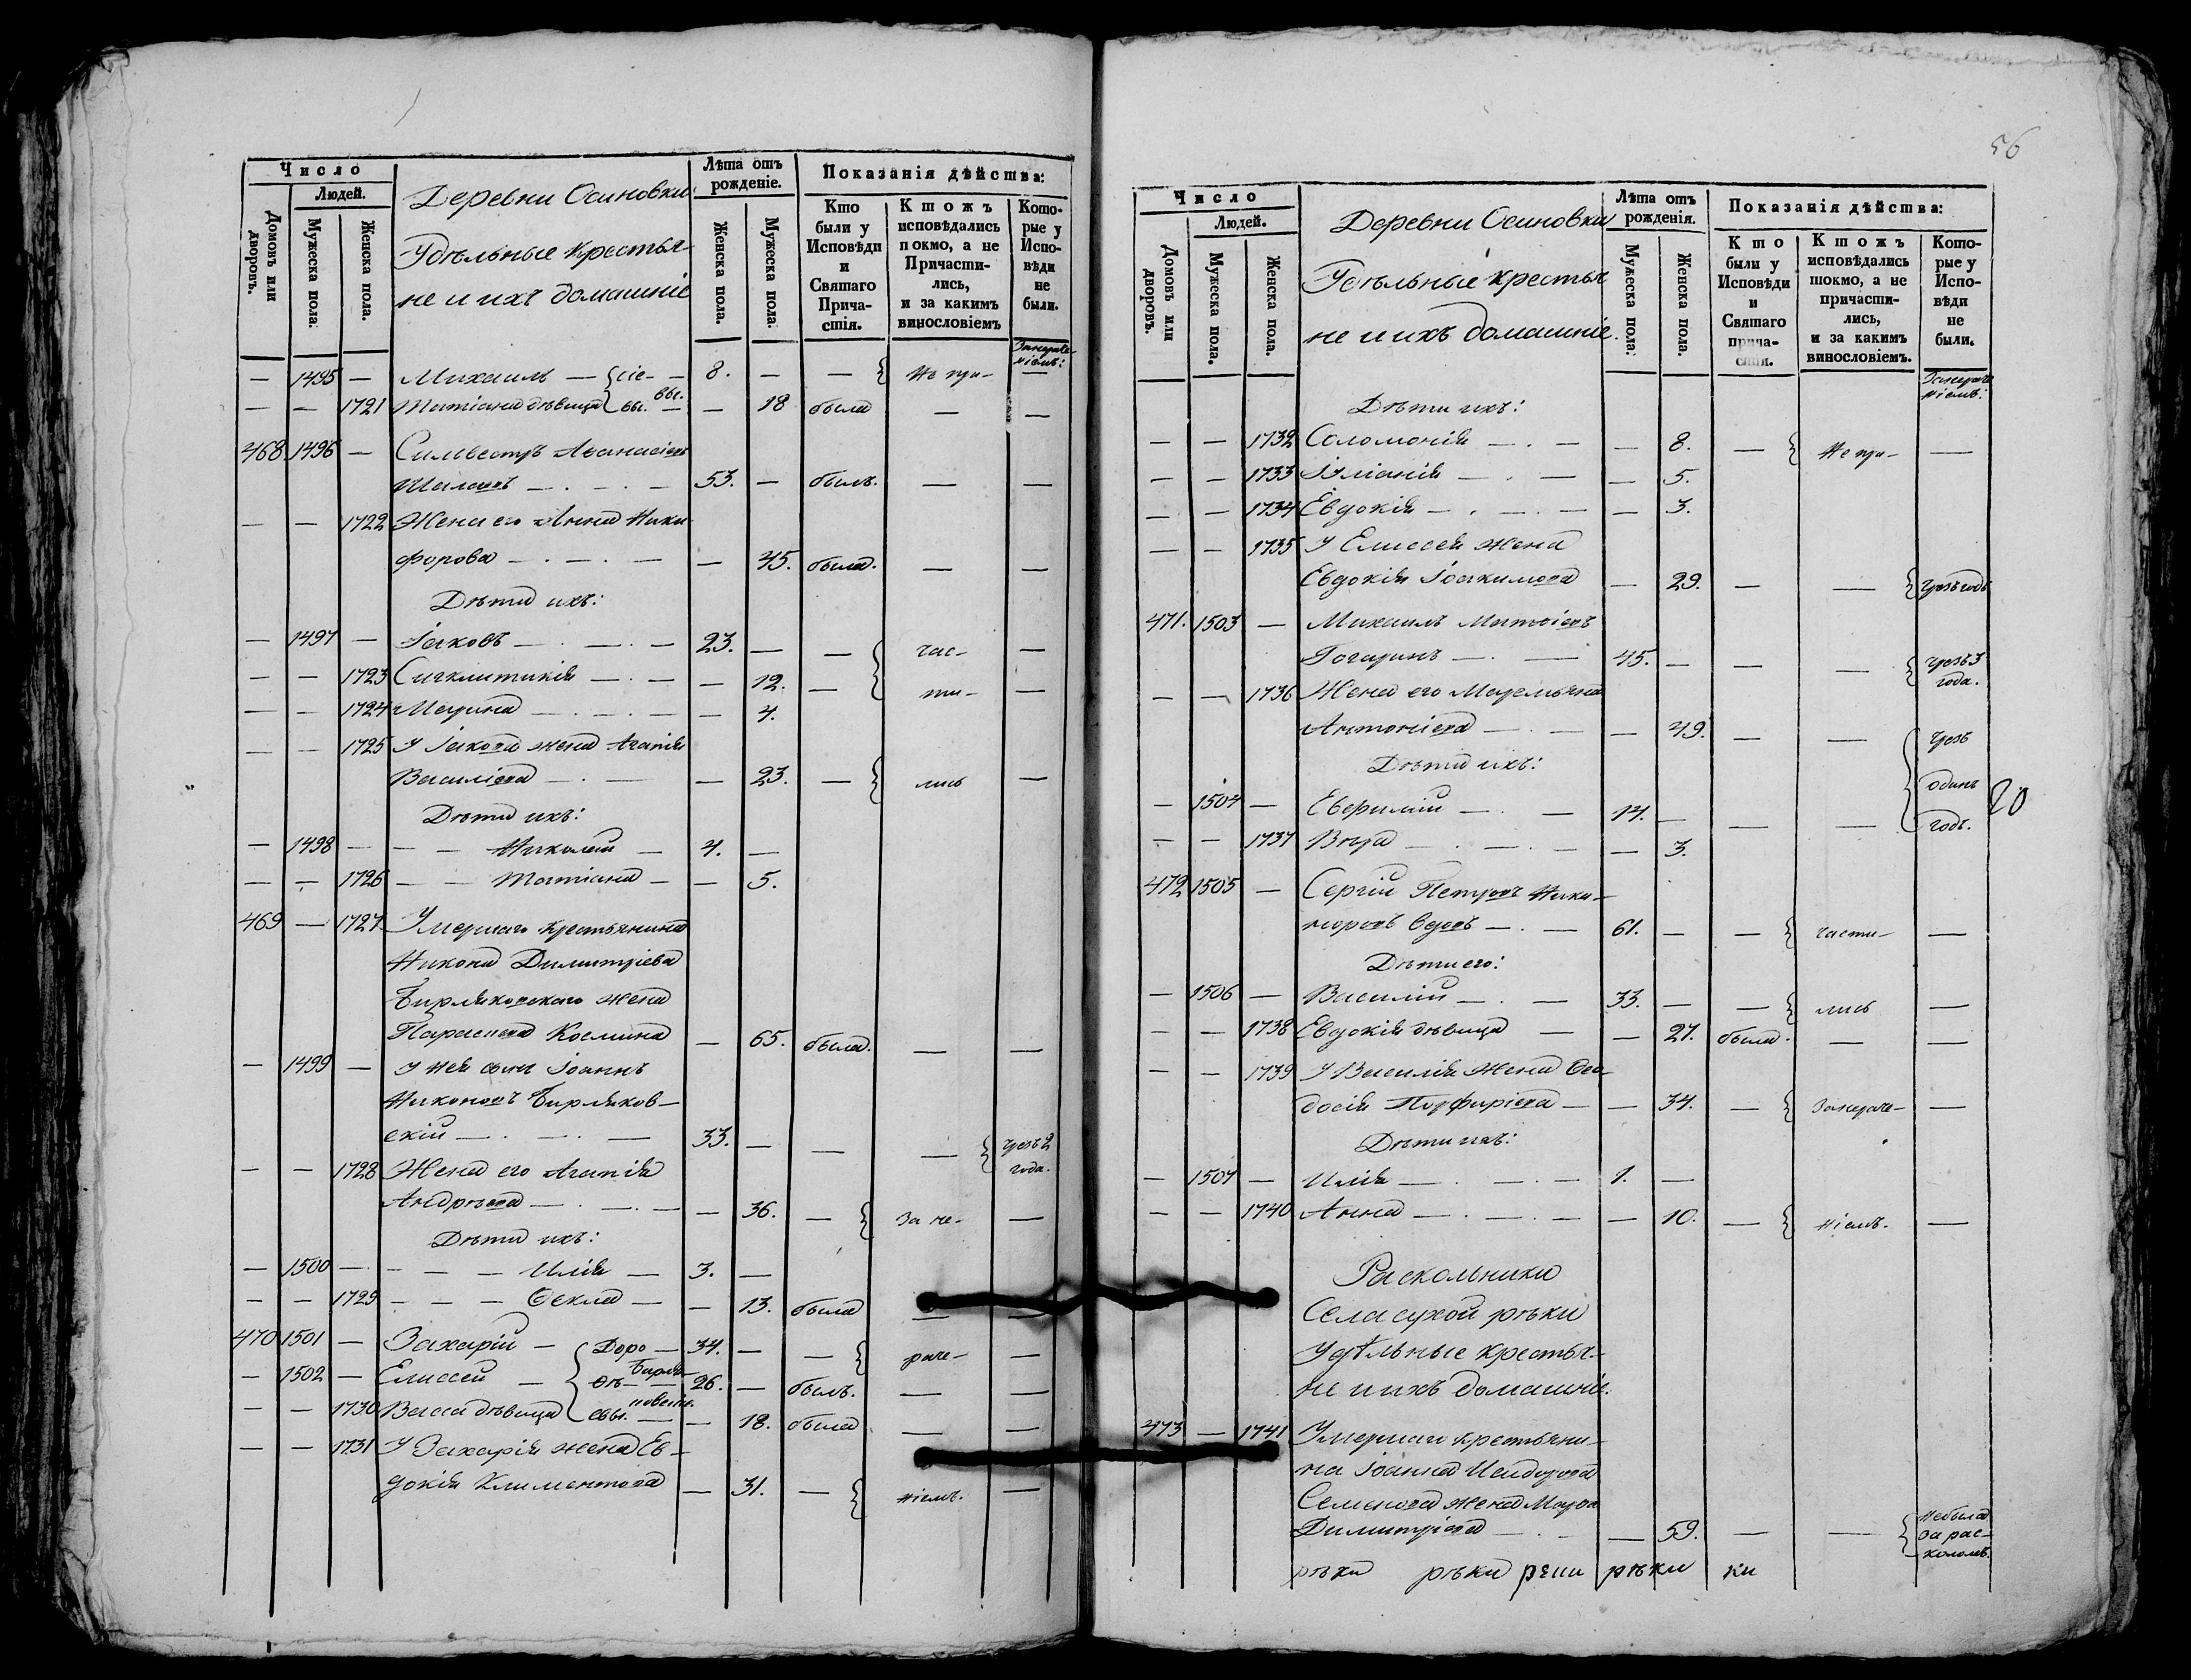 Число
Людей.
Домовъ или дворовъ.
Мужеска пола.
Женска пола.
Деревни Осиновки
Удѣльные крестья-
не и ихъ домашніе
Лѣта отъ рожденіе.
Женска пола.
Мужеска пола.
Показанія дѣйства:
Кто были у Исповѣди и Святаго Прича-стія.
Ктожъ исповѣдались покмо, а не Причасти-лись, и за какимъ винословіемъ
Кото-рые у Испо-вѣди не были.
— 1495 — Михаилъ — 8. — — Не при- —
— — 1721 Татіана дѣвица — 18 была — —
468 1496 — Силвестръ Аѳанасіевъ
53. — былъ. — —
— — 1722 Жена его Анна Ники-
форова — 45. была. — —
Дѣти ихъ:
— 1497 — Іаковъ — 23. — — час- —
— — 1723 Сигклитикія — 12. — ти- —
— — 1724 Марина — 4.
— — 1725 У Іакова жена Агапія
Василіева — 23. — лись —
Дѣти ихъ:
— 1498 — Николай — 4. —
— — 1726 — Татіана — 5.
469 — 1727 Умершаго крестьянина
Никона Димитріева
Бирляковскаго жена
Параскева Космина — 65. была. — —
— 1499 — У нея сынъ Іоаннъ
Никоновъ Бирляков-
скій — 33. — — — чрезъ 2 года.
— — 1728 Жена его Агапія
Андрѣева — 36. — За не- —
Дѣти ихъ:
— 1500 — Илія — 3. —
— — 1729 — Ѳекла — 13. была — —
470 1501 — Захарій — Доро- 34. — — раче- —
— 1502 — Елиссей — 26. — былъ. — —
— — 1730 Васса дѣвица — 18. была — —
— — 1731 У Захарія жена Ев-
докія Климентова — 31. — ніемъ. —
56
Число
Людей.
Домовъ или дворовъ.
Мужеска пола.
Женска пола.
Деревни Осиновки
Удѣльные крестья
не и ихъ домашніе.
Лѣта отъ рожденія.
Мужеска пола:
Женска пола.
Показанія дѣйства:
Кто были у Исповѣди и Святаго прича-стія.
Ктожъ исповѣдались токмо, а не причасти-лись, и за какимъ винословіемъ.
Кото-рые у Испо-вѣди не были.
Дѣти ихъ:
— — 1732 Соломонія — 8. — Не при- —
— — 1733 Іуліанія — 5.
— — 1734 Евдокія — 3.
— — 1735 У Елиссея жена
Евдокія Іоакимова — 29. — — чрезъ годъ
471. 1503 — Михаилъ
45. — — — чрезъ 3 года.
— — 1736 Жена его
Антоніева — 49. — — чрезъ
Дѣти ихъ: одинъ
— 1504 — Евфимій — 14. — — — годъ.
20
— — 1737 Вѣра — 3.
472 1505 — Сергій Петровъ Ники-
форовъ вдовъ — 61. — — части- —
Дѣти его:
— 1506 — Василій — 33. — — лись —
— — 1738 Евдокія дѣвица — 27. была. — —
— — 1739 У Василія жена Ѳео-
досія Порфиріева — 34. — Занераче- —
Дѣти ихъ:
— 1507 — Илія — 1. —
— — 1740 Анна — 10. — ніемъ. —
Раскольники
Села сухой рѣки
Удѣльные крестья-
не и ихъ домашніе.
473 — 1741 Умершаго крестьяни-
на Іоанна Исидорова
Семенова жена Марѳа
Димитріева — 59. — — Небыла за рас-коломъ.
рѣки рѣки рѣки ки